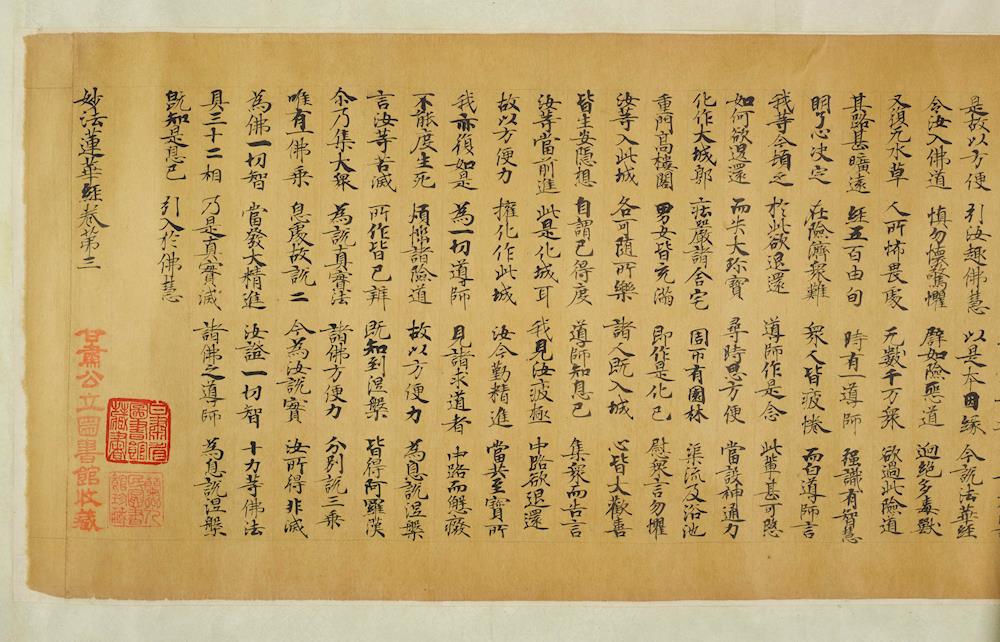 是故以方便 引汝趣佛慧 以是本因緣 今說法華經
令汝入佛道 慎勿懷驚懼 譬如險惡道 迥絕多毒獸
又復无水草 人所怖畏處 无數千万衆 欲過此險道
其路甚曠遠 經五百由旬 時有一導師 强識有智慧
明了心决定 在險濟衆難 衆人皆疲惓 而白導師言
我等今頓乏 於此欲退還 導師作是念 此輩甚可愍
如何欲退還 而失大珎寶 尋時思方便 當設神通力
化作大城郭 莊嚴諸舍宅 周帀有園林 渠流及浴池
重門高樓閣 男女皆充滿 即作是化已 慰衆言勿懼
汝等入此城 各可隨所樂 諸人既入城 心皆大歡喜
皆生安隱想 自謂已得度 導師知息已 集衆而告言
汝等當前進 此是化城耳 我見汝疲極 中路欲退還
故以方便力 權化作此城 汝今勤精進 當共至寶所
我亦復如是 為一切導師 見諸求道者 中路而懈癈
不能度生死 煩惱諸險道 故以方便力 為息說涅槃
言汝等苦滅 所作皆已辦 既知到涅槃 皆得阿羅漢
尒乃集大衆 為說真實法 諸佛方便力 分別說三乘
唯有一佛乘 息處故說二 今為汝說實 汝所得非滅
為佛一切智 當發大精進 汝證一切智 十力等佛法
具三十二相 乃是真實滅 諸佛之導師 為息說涅槃
既知是息已 引入於佛慧
妙法蓮華經卷第三
甘肅公立圖書館收藏